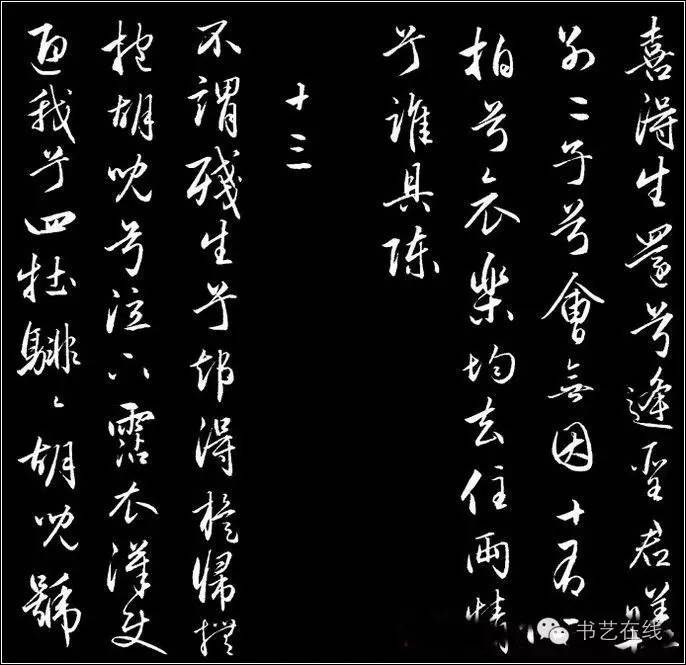 喜得生還兮逢聖君嗟
別二子兮會無因十有二
拍兮哀樂均去住兩情
兮誰具陳
十三
不謂殘生兮却得旋歸撫
抱胡兒兮泣下霑衣漢使
迎我兮四牡騑〻胡兒號
书艺在线